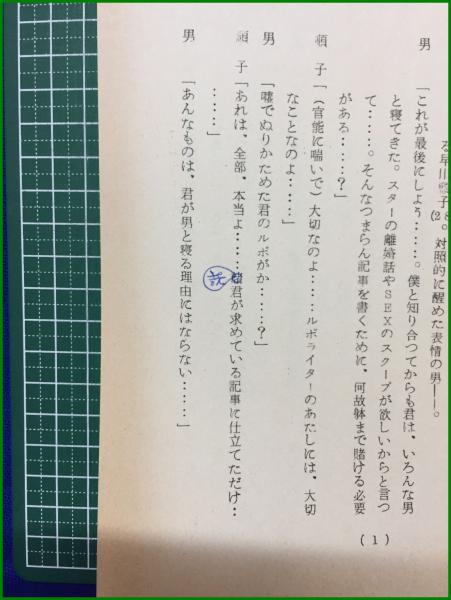 る早川順子(28)。対照的に醒めた表情の男——。
男　「これが最後にしよう……。僕と知り合つてからも君は、いろんな男
と寝てきた。スターの離婚話やSEXのスクープが欲しいからと言つ
て……。そんなつまらん記事を書くために、何故躰まで賭ける必要
がある……?」
順　子「(官能に喘いで)大切なのよ……ルポライターのあたしには、大切
なことなのよ……」
男　「嘘でぬりかためた君のルポがか……?」
順　子「あれは、全部、本当よ……読君が求めている記事に仕立てただけ‥
‥‥‥」
男　「あんなものは、君が男と寝る理由にはならない……」
(1)